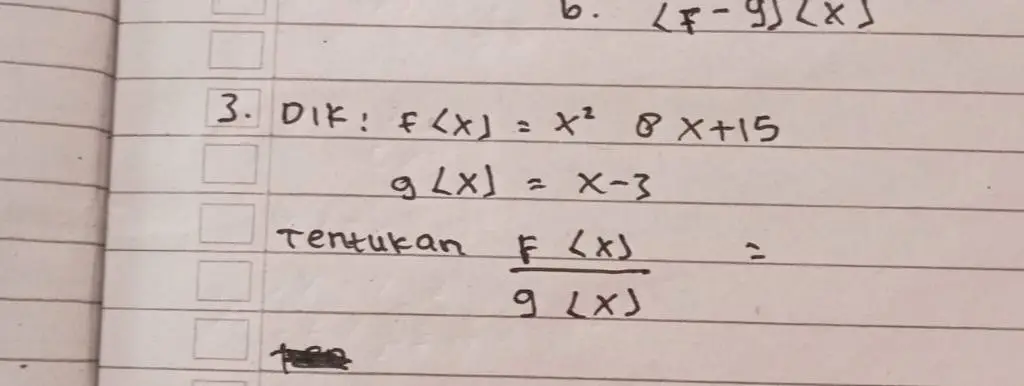 b. (F-g)(x)
3. DIK: F(x) = x² 8x+15
g(x) = x-3
Tentukan F(x) =
g(x)